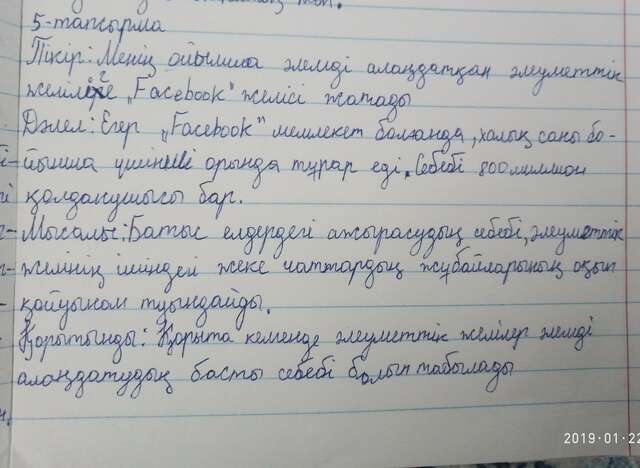 5-тапсырма
Пікір: Менің ойымша әлемді алаңдатқан әлеуметтік
желіге „Facebook" желісі жатады
Дәлел: Егер „Facebook" мемлекет болғанда, халық саны бо-
йынша үшінші орында тұрар еді. Себебі 800миллион
қолданушысы бар.
Мысалы: Батыс елдердегі ажырасудың себебі, әлеуметтік
желінің ішіндегі жеке чаттардың жұбайларының оқып
қоюынан туындайды.
Қорытынды: Қорыта келгенде әлеуметтік желілер әлемді
алаңдатудың басты себебі болып табылады
2019-01-22